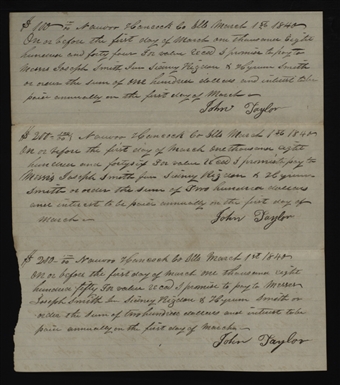 $ 100 — Nauvoo Hancock Co Ills March 1st 1840
On or before the first day of March one thousand eight
hundred and forty four For value recd I promise to pay to
Messrs Joseph Smith Jun Sidney Rigdon & Hyrum Smith
or order the sum of one hundred dollars and interest to be
paid annually on the first day of March —
John Taylor
$ 200 — Nauvoo Hancock Co Ills March 1st 1840
On or before the first day of March one thousand eight
hundred and forty For value recd I promise to pay to
Messrs Joseph Smith Jun Sidney Rigdon & Hyrum
Smith or order the sum of Two hundred dollars
and interest to be paid annually on the first day of
March —
John Taylor
$ 200 — Nauvoo Hancock Co Ills March 1st 1840
On or before the first day of March one thousand eight
hundred fifty For value recd I promise to pay to Messrs
Joseph Smith Jr Sidney Rigdon & Hyrum Smith or
order the sum of two hundred dollars and interest to be
paid annually on the first day of March —
John Taylor